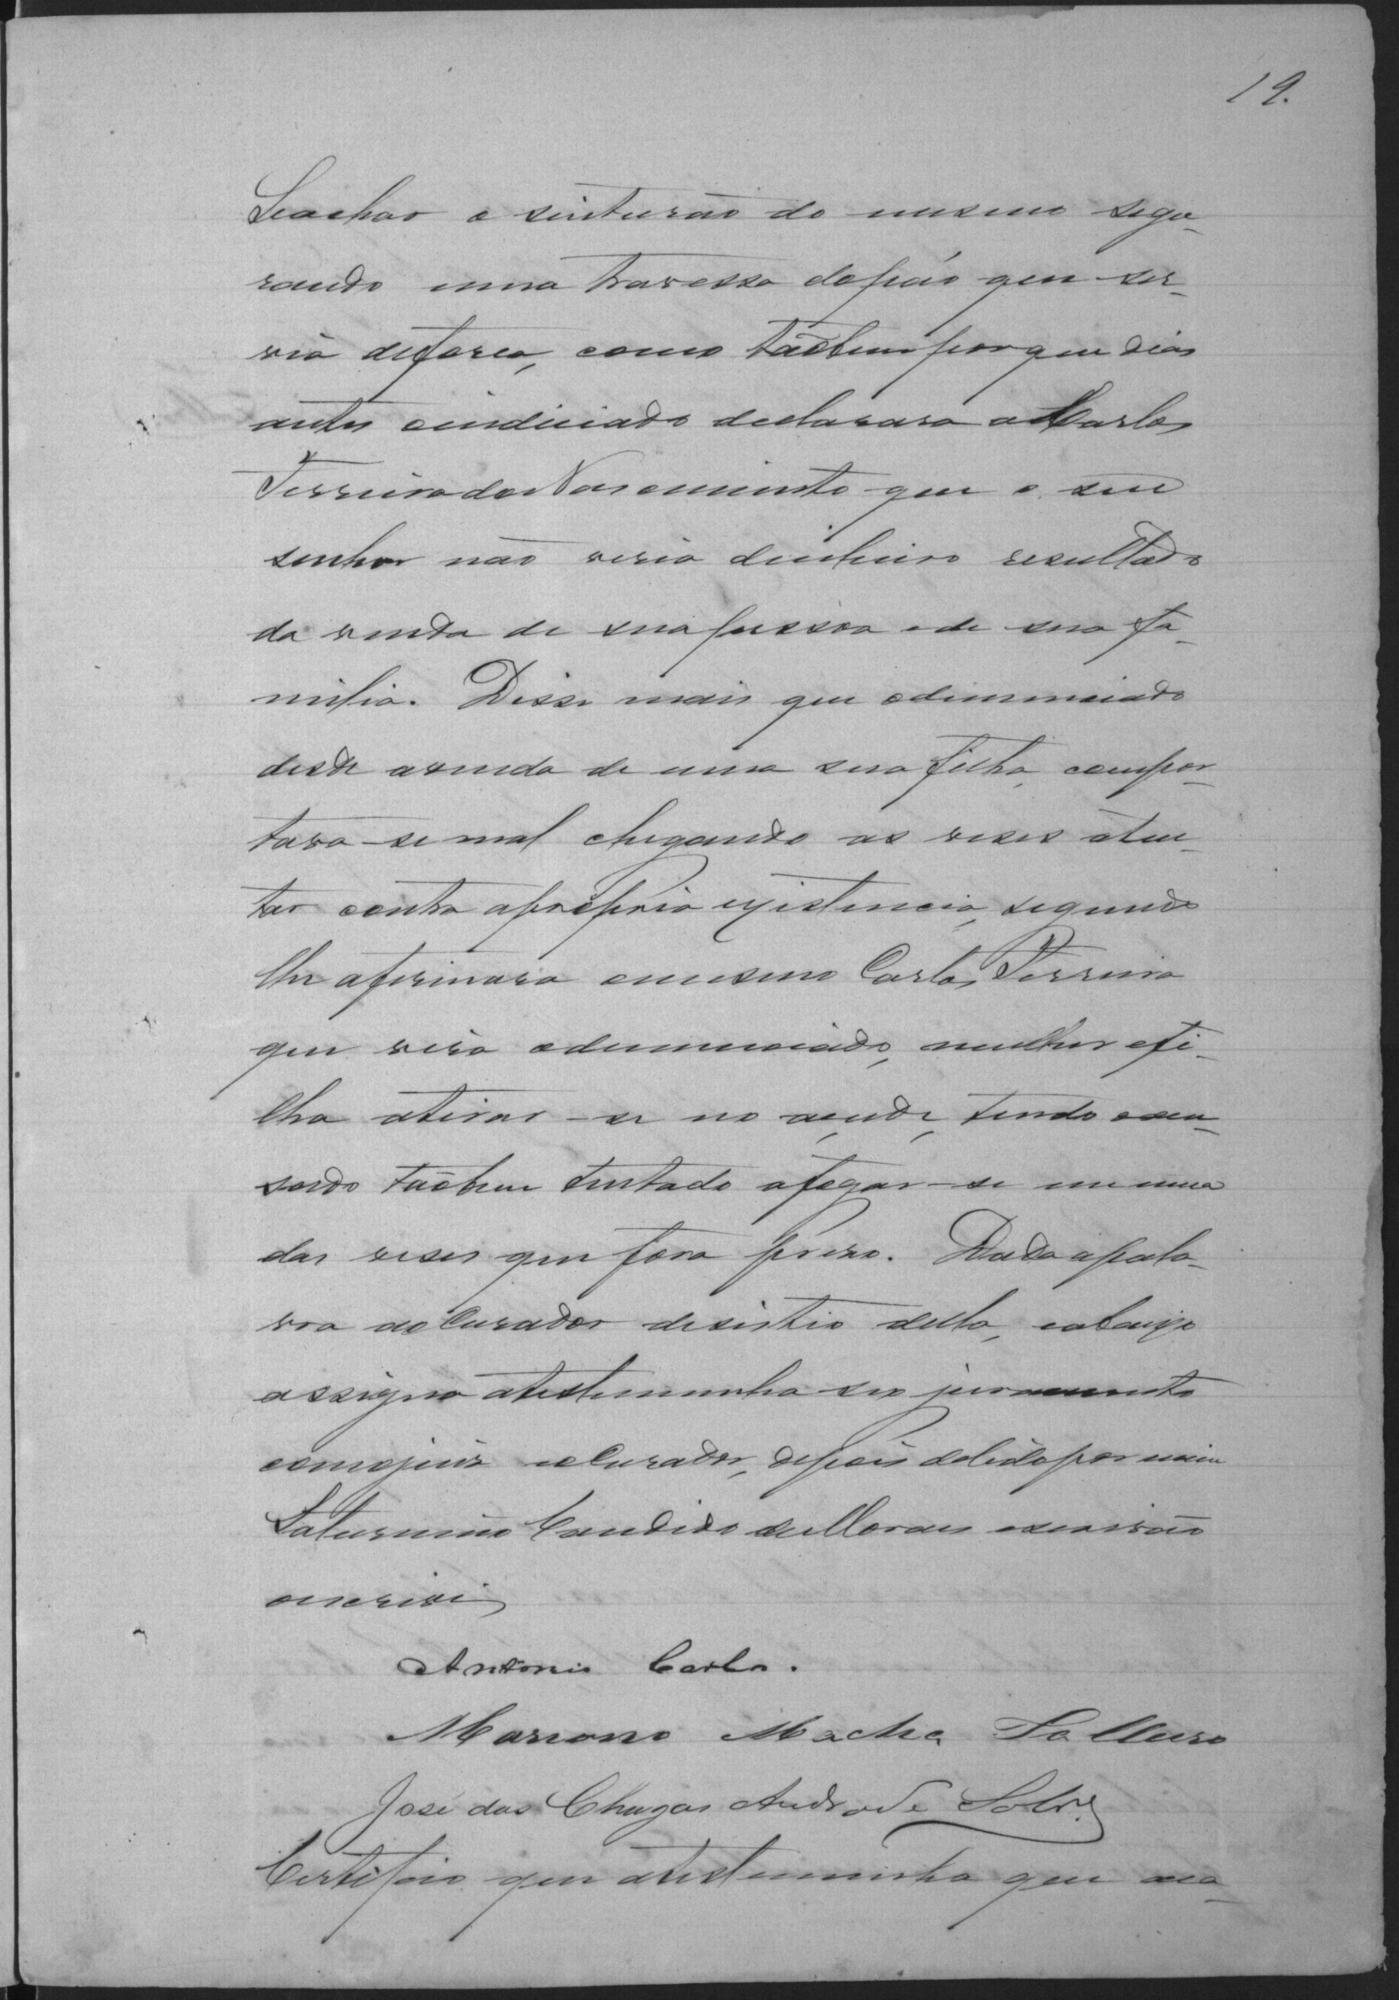 19.
Se achar o sinturão do mesmo segu-
rando uma travessa de páo que ser-
via de forca, como tãobem por que dias
antes o indiciado declarara a Carlos
Ferreira do Nascimento que o seu
senhor não veria dinheiro resultado
da venda de sua pessoa e de sua fa-
milia. Disse mais que o dinunciado
desde a venda de uma sua filha, compor-
tava-se mal chegando as veses áten-
tar contra a propria existencia, segundo
lhe afirmara o mesmo Carlos Ferreira
que vira o denunciado, mulher e fi-
lha atirar-se no açude, tendo o acu-
sado tãobem tentado afogar-se em uma
das veses que fora preso. Dada a pala-
vra ao Curador desistio della, e abaixo
assigna a testemunha seo juramento
com o juis e o Curador, depois de lido por mim
Saturnino Candido de Moraes escrivão
o escrivi,
Antonio Carlos.
Marrano Macha
José das Chagas Andrade Sobr.º
Certifico que a testemunha que aca-